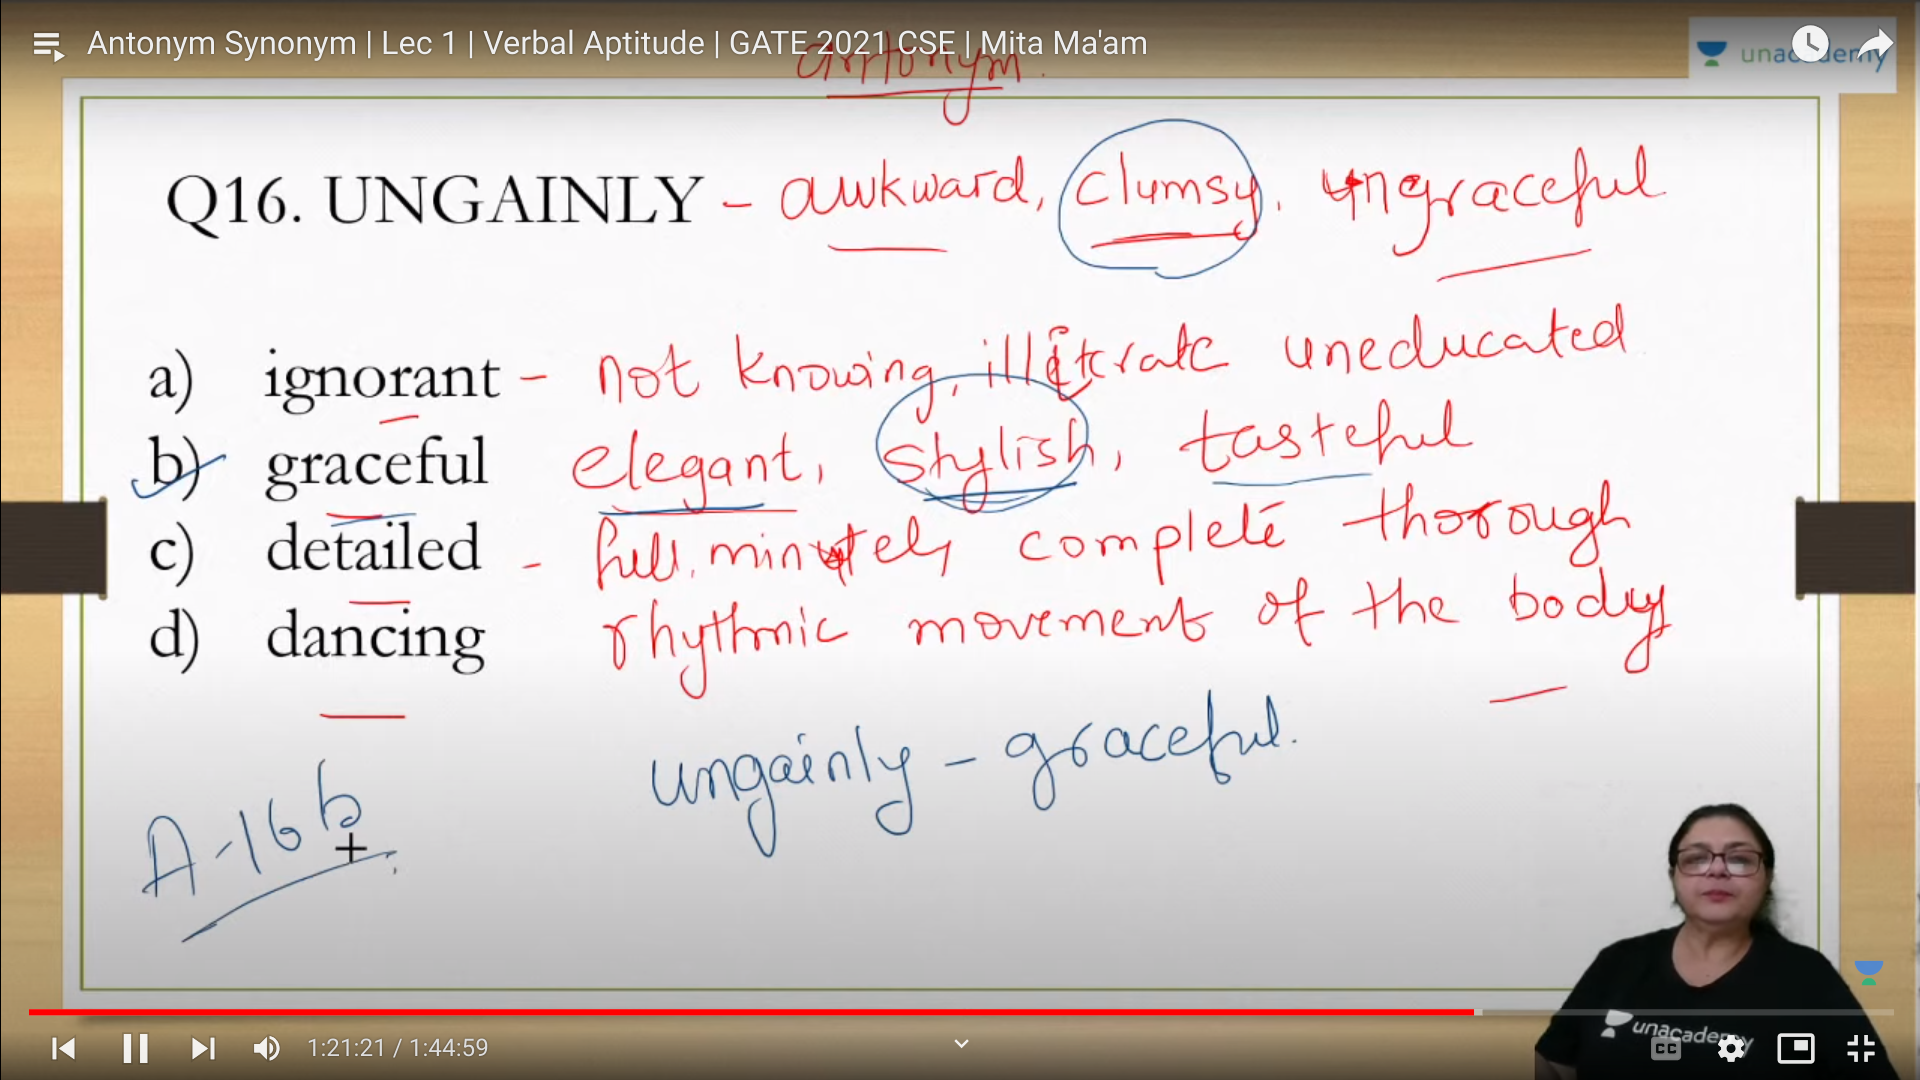 Antonym Synonym | Lec 1 | Verbal Aptitude | GATE 2021 CSE | Mita Ma'am
unacademy
antonym.
Q16. UNGAINLY - awkward, clumsy, ungraceful
a) ignorant - not knowing, illiterate uneducated
b) graceful elegant, stylish, tasteful
c) detailed - full, minutely complete thorough
d) dancing rhythmic movement of the body
ungainly - graceful.
A-16 b
unacademy
1:21:21 / 1:44:59
CC